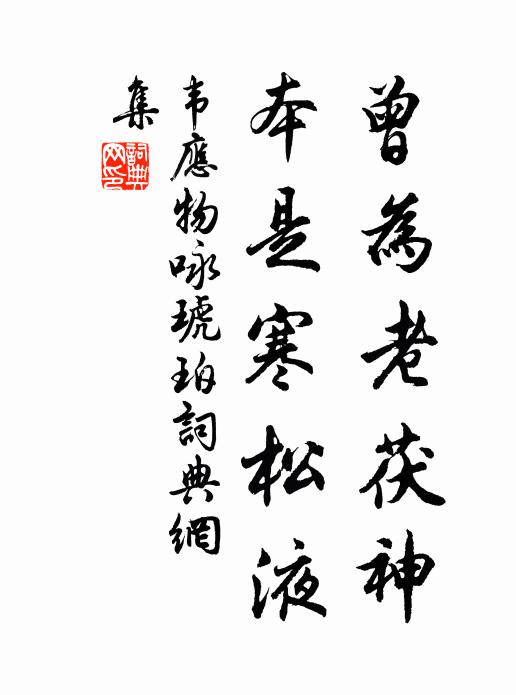 曾為老茯神
本是寒松液
韦應物咏琥珀詞典網
集
詞典
网印